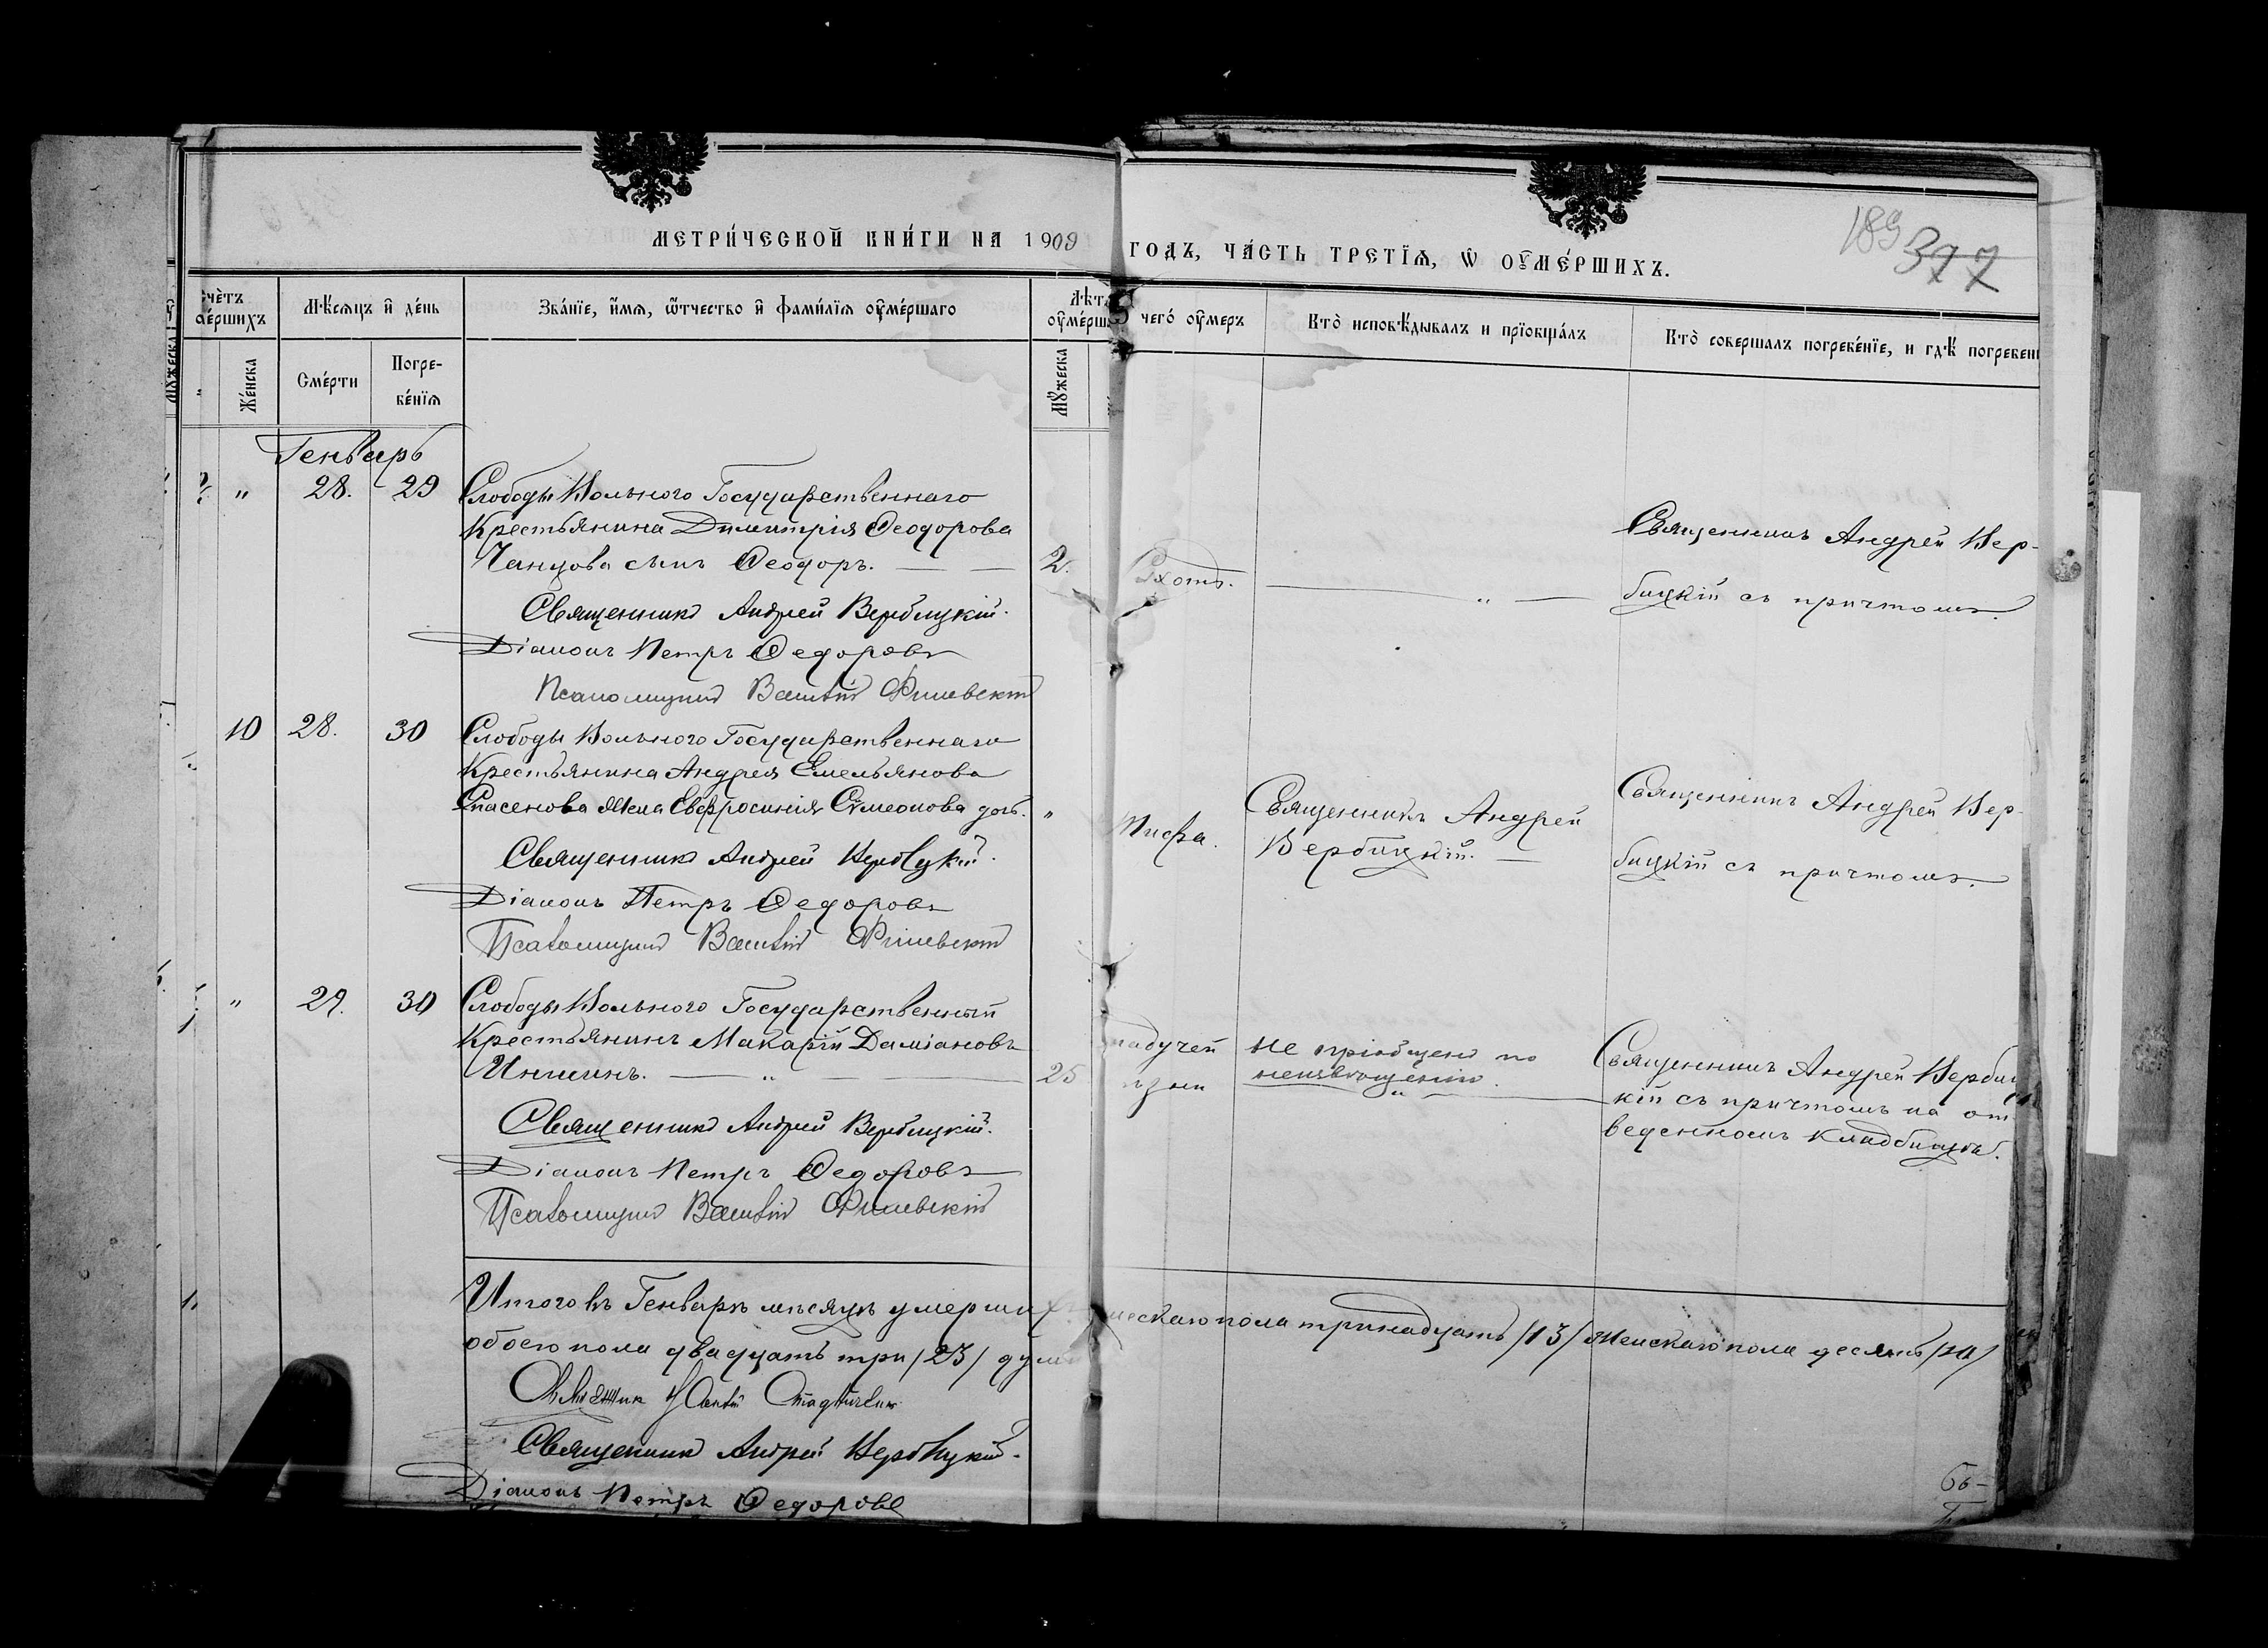 МЕТРИЧЕСКОЙ КНИГИ НА 1909
ГОДЪ, ЧАСТЬ ТРЕТІЯ, Ѡ ОУМЕРШИХЪ.
189 377
Мѣсяцъ и день
Званіе, имя, отчество и фамилія оумершаго
чего оумеръ
Кто исповѣдывалъ и пріобщалъ
Кто совершалъ погребеніе, и гдѣ
Мужеска
Женска
Смерти
Погре-
бенія
Мужеска
Генварь
" 28. 29 Слободы Вольного Государственнаго
Крестьянина Димитрія Ѳеодорова
сынъ Ѳеодоръ. — — 2.
Священникъ Андрей Вербицкій.
Діаконъ Петръ Ѳедоровъ
Псаломщикъ
— " — Священникъ Андрей Вер-
бицкій съ причтомъ.
10 28. 30 Слободы Вольного Государственнаго
Крестьянина Андрея Емельянова
Спасенова жена Евфросинія Сѵмеонова доч. "
Священникъ Андрей Вербицкій.
Діаконъ Петръ Ѳедоровъ
Псаломщикъ
Тифа. Священникъ Андрей
Вербицкій. —
Священникъ Андрей Вер-
бицкій съ причтомъ.
" 29. 30 Слободы Вольного Государственный
Крестьянинъ Макарій Даміановъ
— " — 25
Священникъ Андрей Вербицкій.
Діаконъ Петръ Ѳедоровъ
Псаломщикъ
падучей Не пріобщенъ по
неизвѣщенію.
"
Священникъ Андрей Вербиц
кій съ причтомъ на от
веденномъ кладбищѣ.
Итого въ Генварѣ мѣсяцѣ умерших
ческаго пола тринадцать /13/ женскаго пола десять /10/
обоего пола двадцать три /23/
Священникъ Андрей Вербицкій.
Діаконъ Петръ Ѳедоровъ